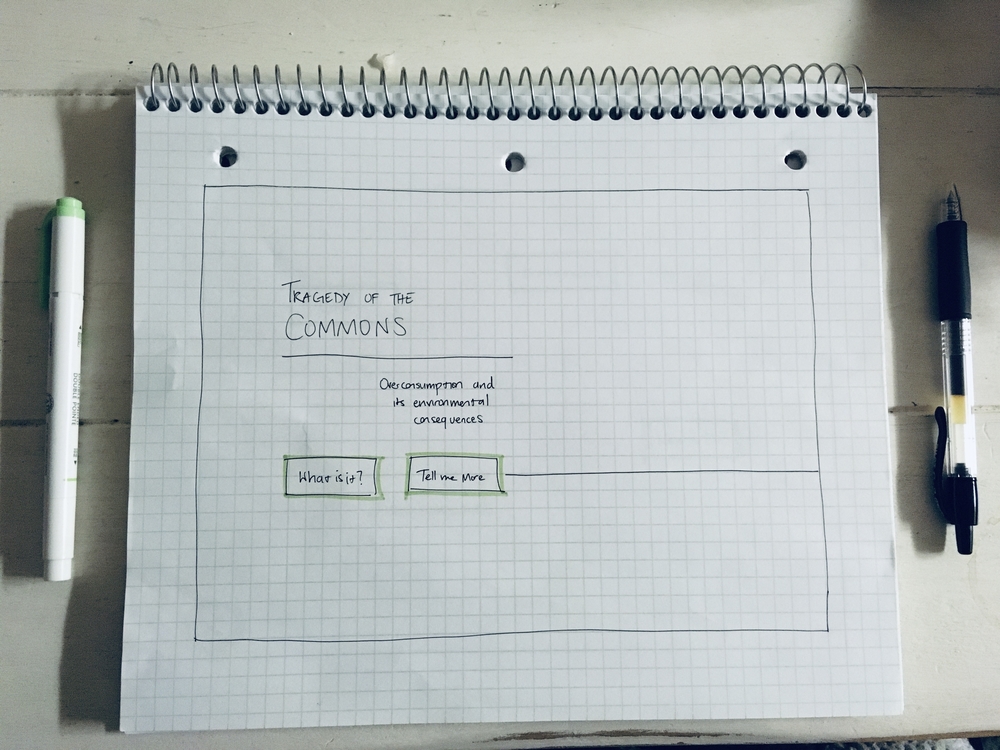 TRAGEDY OF THE
COMMONS
Overconsumption and
its environmental
consequences
What is it?
Tell me More
DOUBLE POINTE